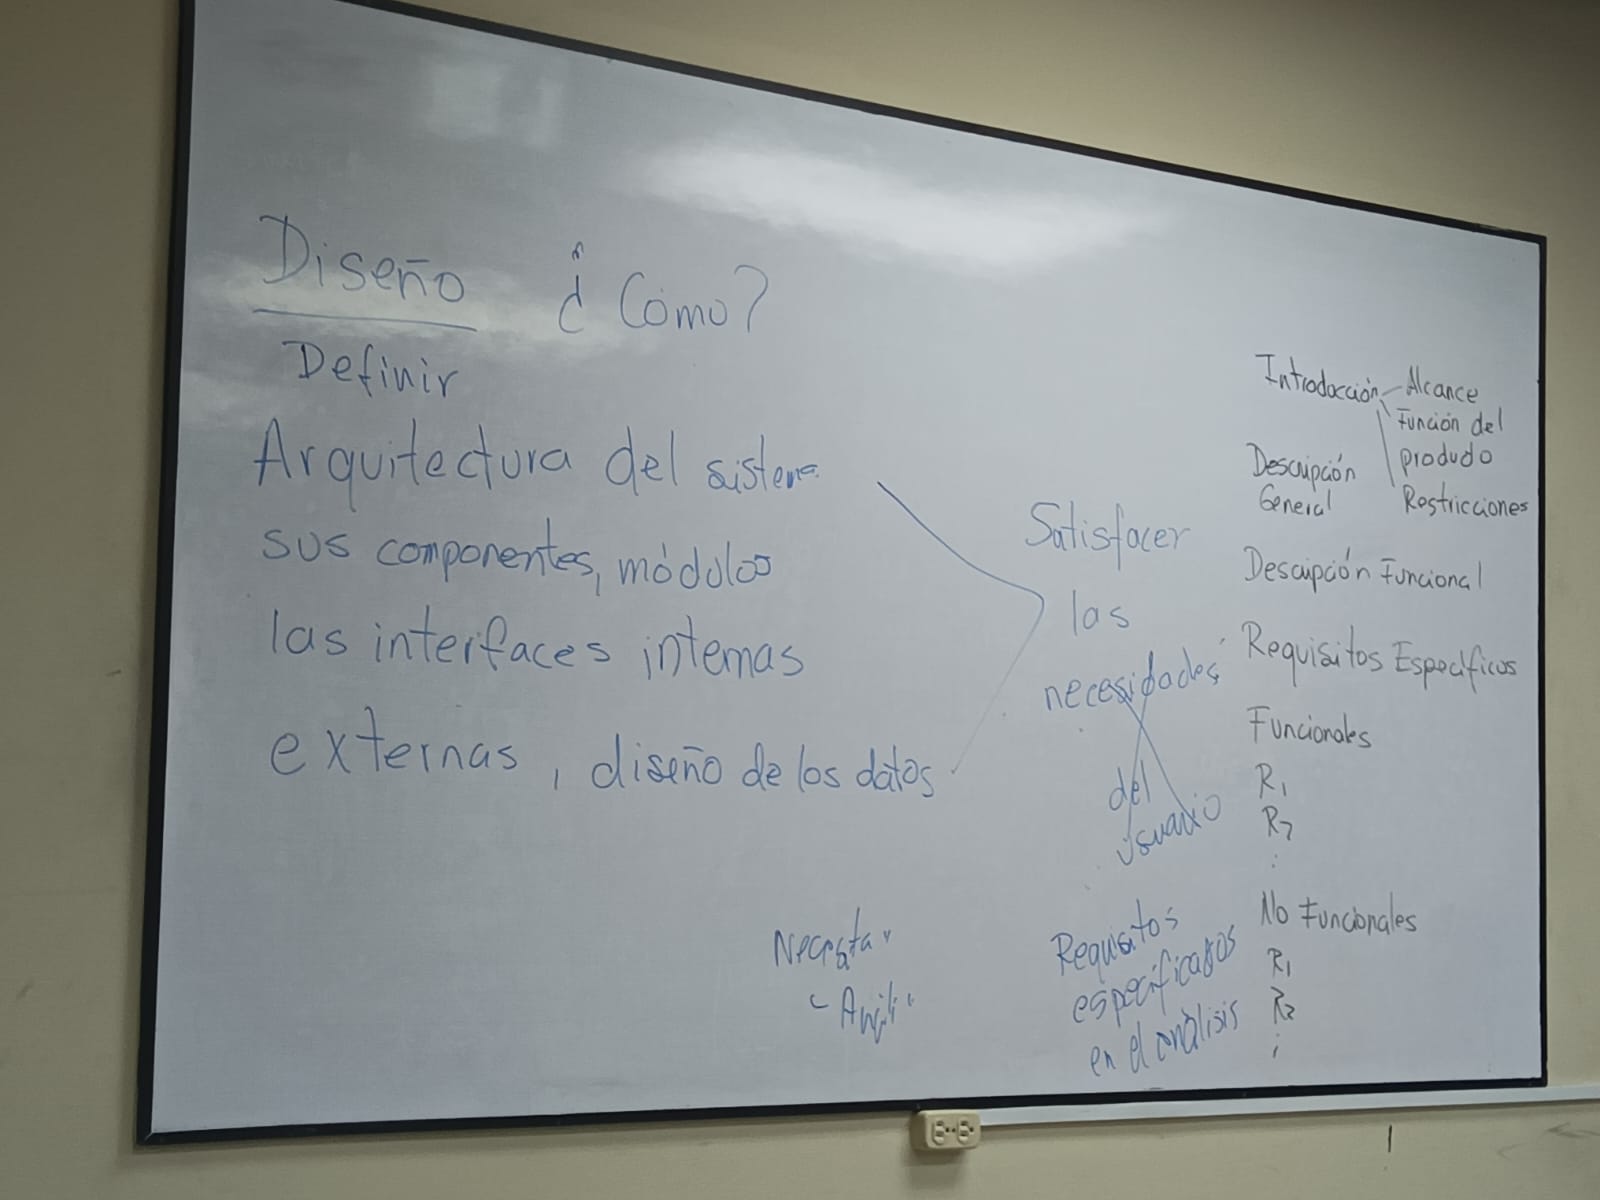 Diseño ¿Cómo?
Definir
Arquitectura del sistema
sus componentes, módulos
las interfaces internas
externas, diseño de los datos
Satisfacer
las
necesidades
del
usuario
Requisitos
especificados
en el análisis
Introducción Alcance
Función del
producto
Restricciones
Descripción
General
Descripción Funcional
Requisitos Específicos
Funcionales
R1
R2
:
No Funcionales
R1
R2
: